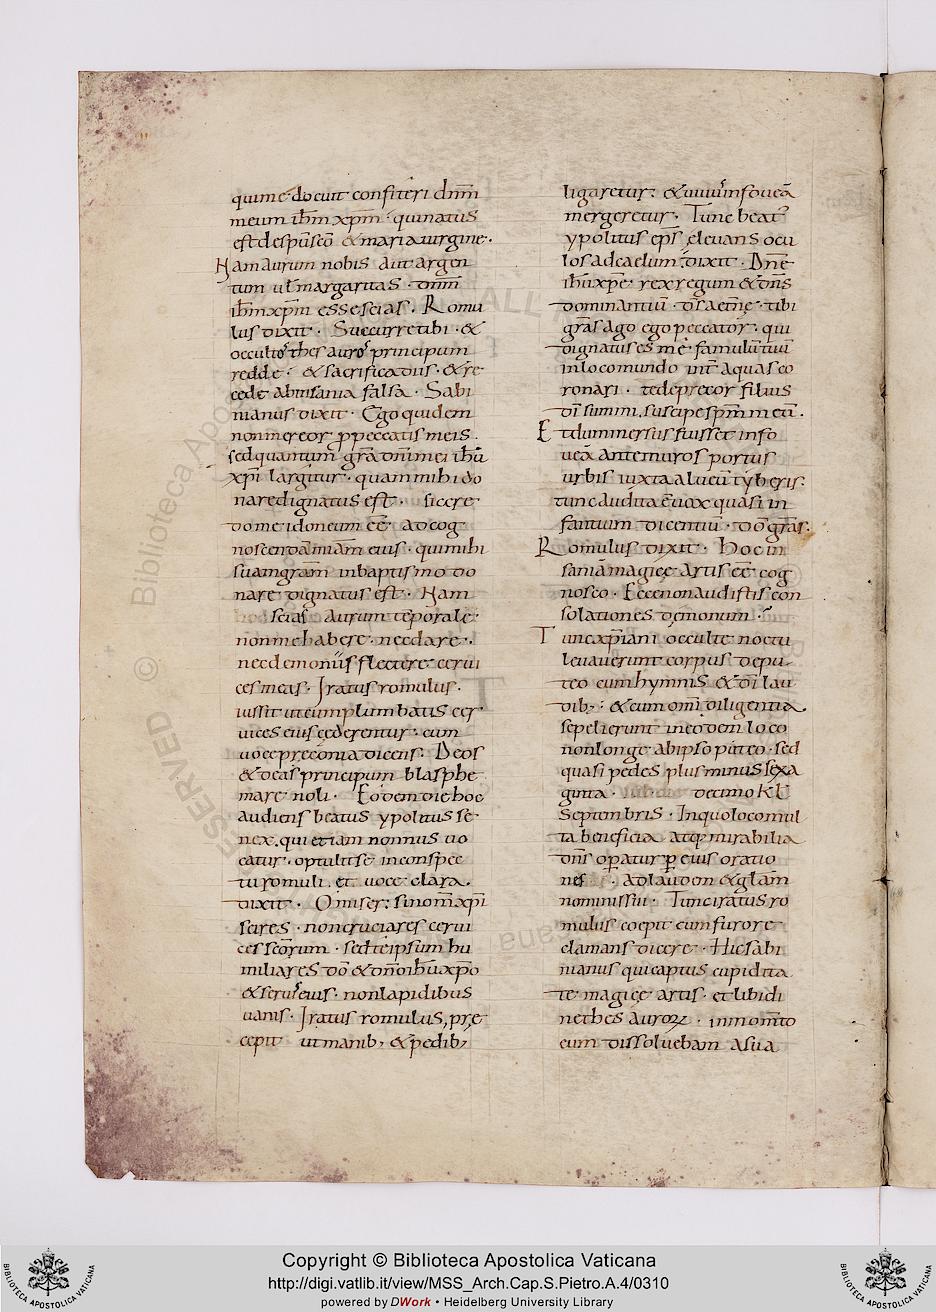 qui me docuit confiteri dn̄m
meum ihm̄ xpm̄ · qui natus
est de spū scō & maria uirgine ·
Nam aurum nobis aut argen
tum ul̄ margaritas · dn̄m
ihm̄ xpm̄ esse scias . Romu
lus dixit · Succurre tibi · &
occultos thes auroȝ principum
redde · & sacrifica diis · & re
cede ab insania falsa · Sabi
nianus dixit · Ego quidem
non mereor p̱ peccatis meis .
sed quantum gr̄a dn̄i mei ihū
xpi largitur · quam mihi do
nare dignatus est · sic cre
do me idoneum eē ad cog
noscendā miam̄ eius · qui mihi
suam gram̄ in baptismo do
nare dignatus est · Nam
scias aurum tēporale
non me habere · nec dare ·
nec demoniis flectere cerui
ces meas · Iratus romulus ·
iussit ut cum plumbatis cer
uices eius cederentur · cum
uoce preconia dicens : Deos
& deas principum blasphe
mare noli · Eodem die hoc
audiens beatus ypolitus se
nex · qui etiam nonnus uo
catur · optulit se in conspec
tu romuli · et uoce clara ·
dixit · O miser : si nom̄ xpi
scires · non cruciares cerui
ces scōrum · sed te ipsum hu
miliares dō & dn̄o ihū xpo
& seruis eius · non lapidibus
uanis · Iratus romulus , pre
cepit ut manib; & pedib;
ligaretur : & uiuus in foueā
mergeretur · Tunc beat᷒
ypolitus ep̄s eleuans ocu
los ad caelum dixit · Dn̄e
ihū xpe · rex regum & dn̄s
dominantiū · ds̄ aetn̄e · tibi
gras̄ ago ego peccator · qui
dignatus es me famulū tuū
in loco mundo int̄ aquas co
ronari · te deprecor filius
dī summi , suscipe spm̄ meū .
Et dum mersus fuisset in fo
ueā ante muros portus
urbis iuxta alueū tyberis :
tunc audita ē uox quasi in
fantium dicentiū · dō gras̄ .
Romulus dixit · Hoc in
sania magice artis eē cog
nosco · Ecce non audistis con
solationes demonum ·
Tunc xpiani occulte noctu
leuauerunt corpus de pu
teo cum hymnis & dī lau
dib; · & cum omī diligentia
sepelierunt in eodem loco
non longe ab ipso puteo · sed
quasi pedes plus minus sexa
ginta · decimo kl̄
Septembris · In quo loco mul
ta beneficia atq; mirabilia
dn̄s operatur p̱ eius oratio
nes · ad laudem & glam̄
nominis sui · Tunc iratus ro
mulus coepit cum furore
clamans dicere · Hic sabi
nianus qui captus cupidita
te magice artis · et libidi
ne thes auroꝝ · in mom̄to
eum dissoluebam a sua